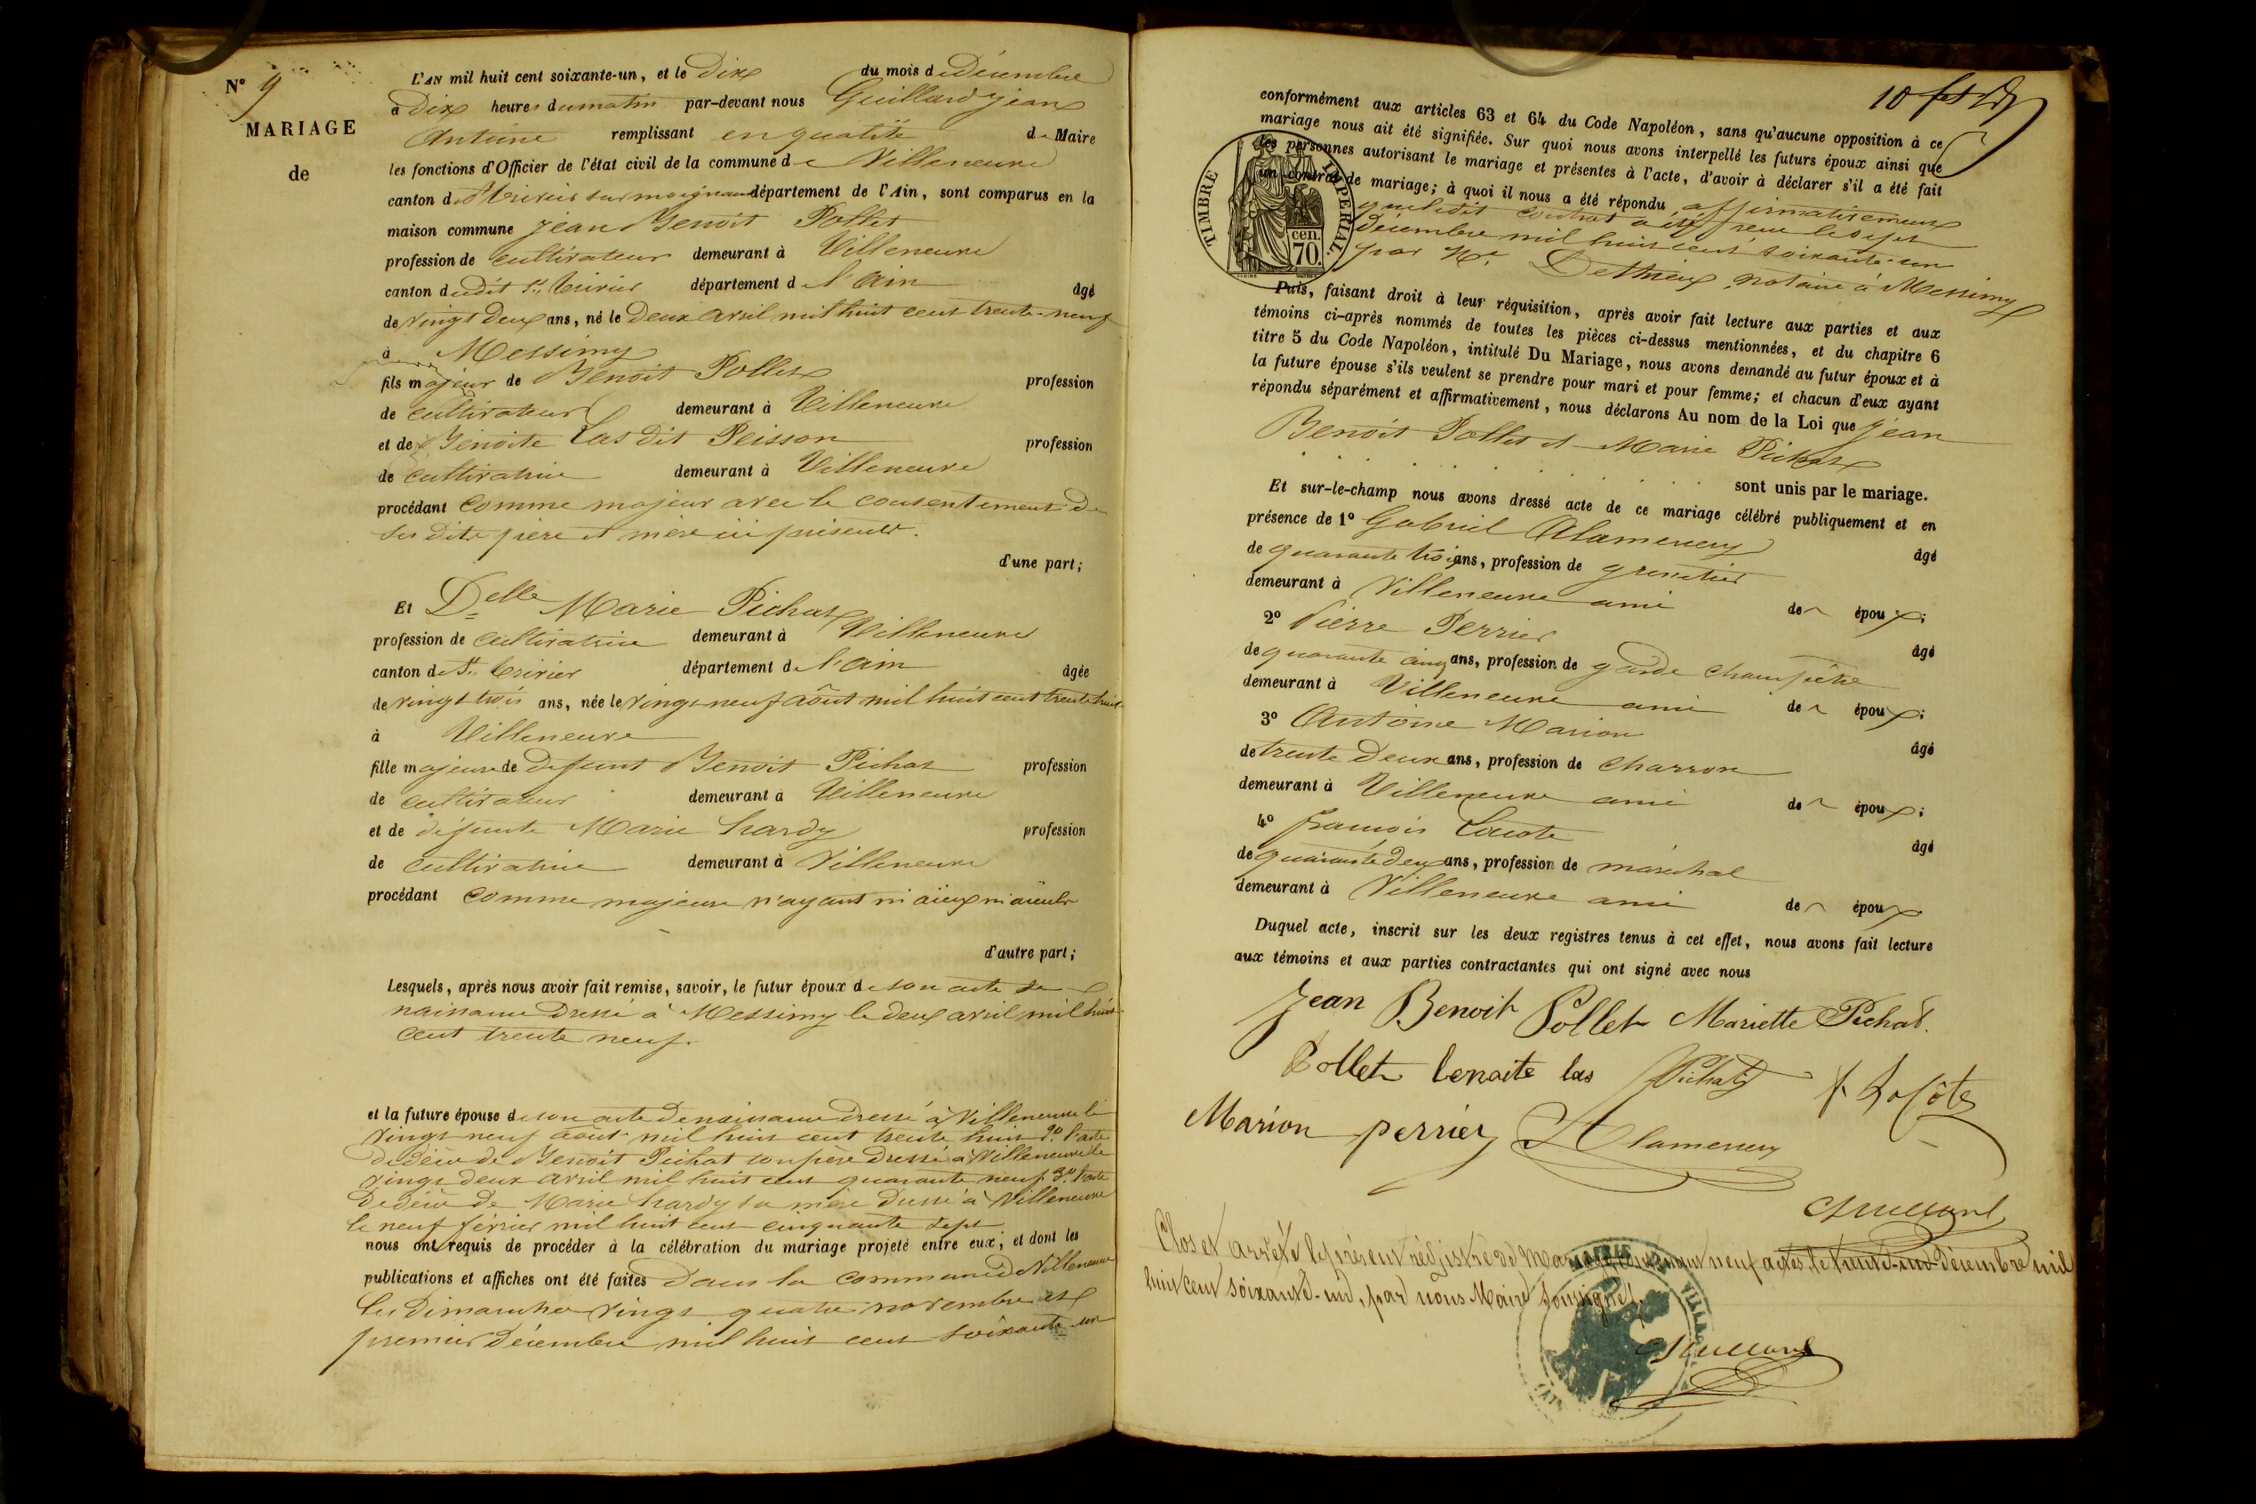 N° 9
MARIAGE
de
L'AN mil huit cent soixante-un, et le Dix du mois de décembre
à Dix heures du matin par-devant nous Guillard jean
Antoine remplissant en qualité de Maire
les fonctions d'Officier de l'état civil de la commune de Villeneuve
canton de St trivier sur moignans département de l'Ain, sont comparus en la
maison commune jean Benoit Pollet
profession de cultivateur demeurant à Villeneuve
canton dudit St trivier département de l'ain âgé
de vingt deux ans, né le deux avril mil huit cent trente-neuf
à Messimy
fils majeur de Benoit Pollet profession
de cultivateur demeurant à Villeneuve
et de Benoite Las dit Peisson profession
de cultivatrice demeurant à Villeneuve
procédant comme majeur avec le consentement de
ses dits père et mère ici présents.
d'une part;
Et Delle Marie Pichat
profession de cultivatrice demeurant à Villeneuve
canton de St trivier département de l'ain âgée
de vingt trois ans, née le vingt neuf août mil huit cent trente huit
à Villeneuve
fille majeure de défunt Benoit Pichat profession
de cultivateur demeurant à Villeneuve
et de défunte Marie hardy profession
de cultivatrice demeurant à Villeneuve
procédant comme majeure n'ayant ni aïeux ni aïeules
d'autre part;
Lesquels, après nous avoir fait remise, savoir, le futur époux de son acte de
naissance dressé à Messimy le deux avril mil huit
cent trente neuf.
et la future épouse de son acte de naissance dressé à Villeneuve le
vingt neuf août mil huit cent trente huit 2° l'acte
de décès de Benoit Pichat son père dressé à Villeneuve le
vingt deux avril mil huit cent quarante neuf 3° l'acte
de décès de Marie hardy sa mère dressé à Villeneuve
le neuf février mil huit cent cinquante sept
nous ont requis de procéder à la célébration du mariage projeté entre eux; et dont les
publications et affiches ont été faites dans la commune de Villeneuve
les dimanches vingt quatre novembre et
premier décembre mil huit cent soixante un
10
conformément aux articles 63 et 64 du Code Napoléon, sans qu'aucune opposition à ce
mariage nous ait été signifiée. Sur quoi nous avons interpellé les futurs époux ainsi que
les personnes autorisant le mariage et présentes à l'acte, d'avoir à déclarer s'il a été fait
un contrat de mariage; à quoi il nous a été répondu affirmativement
que ledit contrat a été reçu le sept
décembre mil huit cent soixante-un
par Me notaire à Messimy
TIMBRE IMPERIAL.
70. cen.
Puis, faisant droit à leur réquisition, après avoir fait lecture aux parties et aux
témoins ci-après nommés de toutes les pièces ci-dessus mentionnées, et du chapitre 6
titre 5 du Code Napoléon, intitulé Du Mariage, nous avons demandé au futur époux et à
la future épouse s'ils veulent se prendre pour mari et pour femme; et chacun d'eux ayant
répondu séparément et affirmativement, nous déclarons Au nom de la Loi que jean
Benoit Pollet et Marie Pichat
sont unis par le mariage.
Et sur-le-champ nous avons dressé acte de ce mariage célébré publiquement et en
présence de 1° Gabriel Alamercery âgé
de quarante trois ans, profession de grenetier
demeurant à Villeneuve ami de époux;
2° Pierre Perrier âgé
de quarante cinq ans, profession de garde champêtre
demeurant à Villeneuve ami de époux;
3° Antoine Marion âgé
de trente deux ans, profession de charron
demeurant à Villeneuve ami de époux;
4° françois Lacote âgé
de quarante deux ans, profession de maréchal
demeurant à Villeneuve ami de époux
Duquel acte, inscrit sur les deux registres tenus à cet effet, nous avons fait lecture
aux témoins et aux parties contractantes qui ont signé avec nous
Jean Benoit Pollet Mariette Pichat.
Pollet benoite las Pichat f Lacôte
Marion perrier Alamercery
Guillard
Clos et arrêté le présent régistre de Mariage contenant neuf actes, le trente-un décembre mil
huit cent soixante-un, par nous Maire soussigné.
Guillard